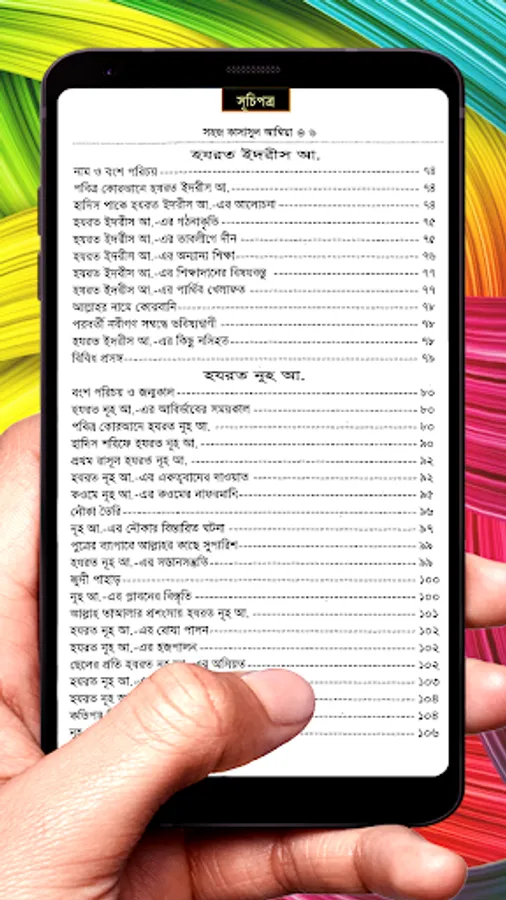 সূচিপত্র
সহজ কাসাসুল আম্বিয়া ৬
হযরত ইদরীস আ.
নাম ও বংশ পরিচয় ৭৪
পবিত্র কোরআনে হযরত ইদরীস আ. ৭৪
হাদিস পাকে হযরত ইদরীস আ.-এর আলোচনা ৭৪
হযরত ইদরীস আ.-এর গঠনাকৃতি ৭৫
হযরত ইদরীস আ.-এর তাবলীগে দ্বীন ৭৫
হযরত ইদরীস আ.-এর অন্যান্য শিক্ষা ৭৬
হযরত ইদরীস আ.-এর শিক্ষাদানের বিষয়বস্তু ৭৭
হযরত ইদরীস আ.-এর পার্থিব খেলাফত ৭৭
আল্লাহর নামে কোরবানি ৭৮
পরবর্তী নবীগণ সম্বন্ধে ভবিষ্যদ্বাণী ৭৮
হযরত ইদরীস আ.-এর কিছু নসিহত ৭৮
বিবিধ প্রসঙ্গ ৭৯
হযরত নূহ আ.
বংশ পরিচয় ও জন্মকাল ৮০
হযরত নূহ আ.-এর আবির্ভাবের সময়কাল ৮০
পবিত্র কোরআনে হযরত নূহ আ. ৮০
হাদিস শরিফে হযরত নূহ আ. ৯০
প্রথম রাসূল হযরত নূহ আ. ৯২
হযরত নূহ আ.-এর একত্ববাদের দাওয়াত ৯২
কওমে নূহ আ.-এর কওমের নাফরমানি ৯৫
নৌকা তৈরি ৯৬
নূহ আ.-এর নৌকার বিস্তারিত ঘটনা ৯৭
পুত্রের ব্যাপারে আল্লাহর কাছে সুপারিশ ৯৯
হযরত নূহ আ.-এর সন্তানসন্ততি ৯৯
জুদী পাহাড় ১০০
নূহ আ.-এর প্লাবনের বিস্তৃতি ১০০
আল্লাহ তাআলার প্রশংসায় হযরত নূহ আ. ১০১
হযরত নূহ আ.-এর রোযা পালন ১০২
হযরত নূহ আ.-এর হজপালন ১০২
ছেলের প্রতি হযরত নূহ আ.-এর অসিয়ত ১০২
হযরত নূহ আ. ১০৩
হযরত নূহ ১০৪
কতিপয় ১০৪
১০৬